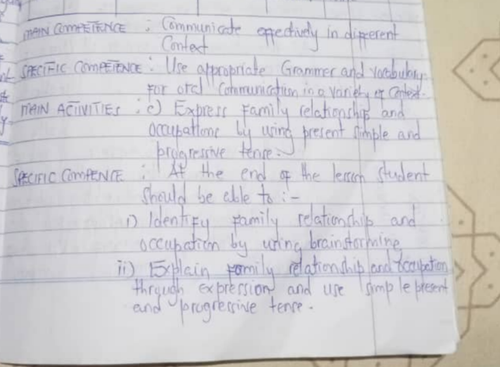 MAIN COMPETENCE : Communicate effectively in different
Context
SPECIFIC COMPETENCE : Use appropriate Grammer and vocabulary
For oral Communication in a variety of Context.
MAIN ACTIVITIES : c) Express Family relationship and
occupations by using present simple and
progressive tense.
SPECIFIC COMPENCE : At the end of the lesson student
should be able to :-
i) Identify Family relationship and
occupation by using brainstorming
ii) Explain Family relationship and occupation
through expression and use simple present
and progressive tense.